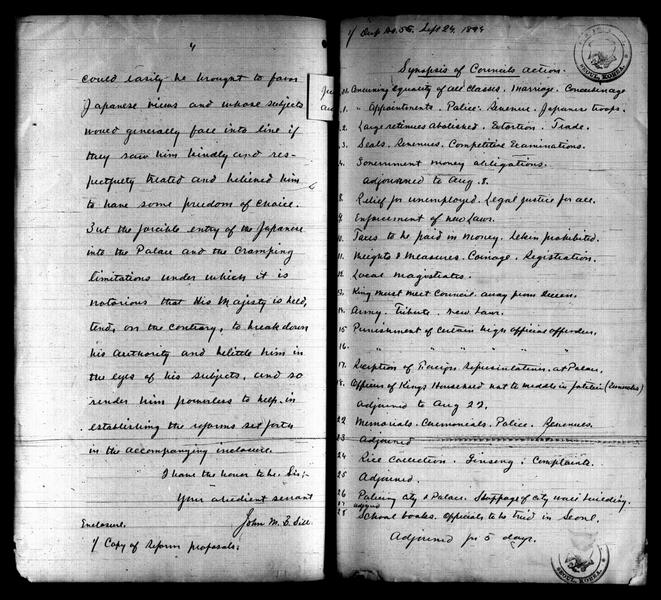 4
could easily be brought to favor
Japanese views and whose subjects
would generally face into line if
they saw him kindly and res-
pectfully treated and believed him
to have some freedom of choice.
But the forcible entry of the Japanese
into the Palace and the cramping
limitations under which it is
notorious that His Majesty is held,
tend, on the contrary, to break down
his authority and belittle him in
the eyes of his subjects, and so
render him powerless to help in
establishing the reforms set forth
in the accompanying inclosure.
I have the honor to be, Sir,
Your obedient servant
John M. B. Sill
Enclosure.
1/ Copy of reform proposals.
1/ Desp No. 56. Sept 24, 1894
SEOUL, KOREA.
Synopsis of Councils action.
Equality of all classes. Marriage. Concubinage
1. " Appointments. Police. Revenue. Japanese troops.
2. Large retinues abolished. Extortion. Trade.
3. Seals. Revenues. Competitive Examinations.
4. Government money obligations.
adjourned to Aug. 8.
8. Relief for unemployed. Legal justice for all.
9. Enforcement of new laws.
10. Taxes to be paid in money. Lekin prohibited.
11. Weights & Measures. Coinage. Registration.
12. Local magistrates.
13. King must meet Council away from Queen.
14. Army. Tribute. New Laws.
15 Punishment of certain high official offenders.
16. " " " " "
17. Reception of Foreign Representatives at Palace.
18. Officers of Kings Household not to meddle in
adjourned to Aug 22.
22 Memorials. Ceremonials. Police. Revenues.
23 adjourned
24 Rice Collection. Ginseng. Complaints.
25 Adjourned.
26 Policing city & Palace. Stoppage of city wall building.
27 adjourned
28 School books. Officials to be tried in Seoul.
Adjourned for 5 days.
SEOUL, KOREA.